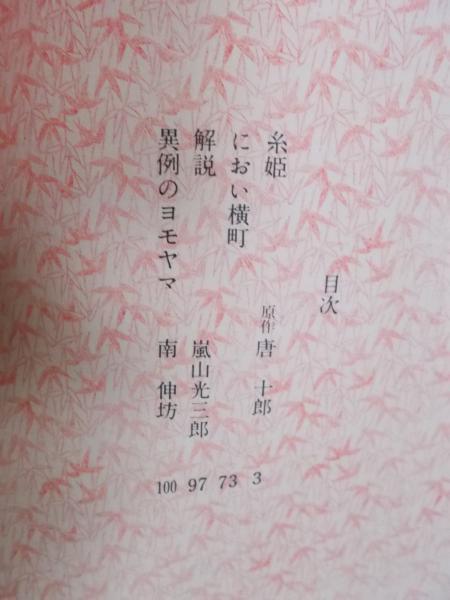 目次
糸姫 原作 唐 十郎 3
におい横町 73
解説 嵐山光三郎 97
異例のヨモヤマ 南 伸坊 100